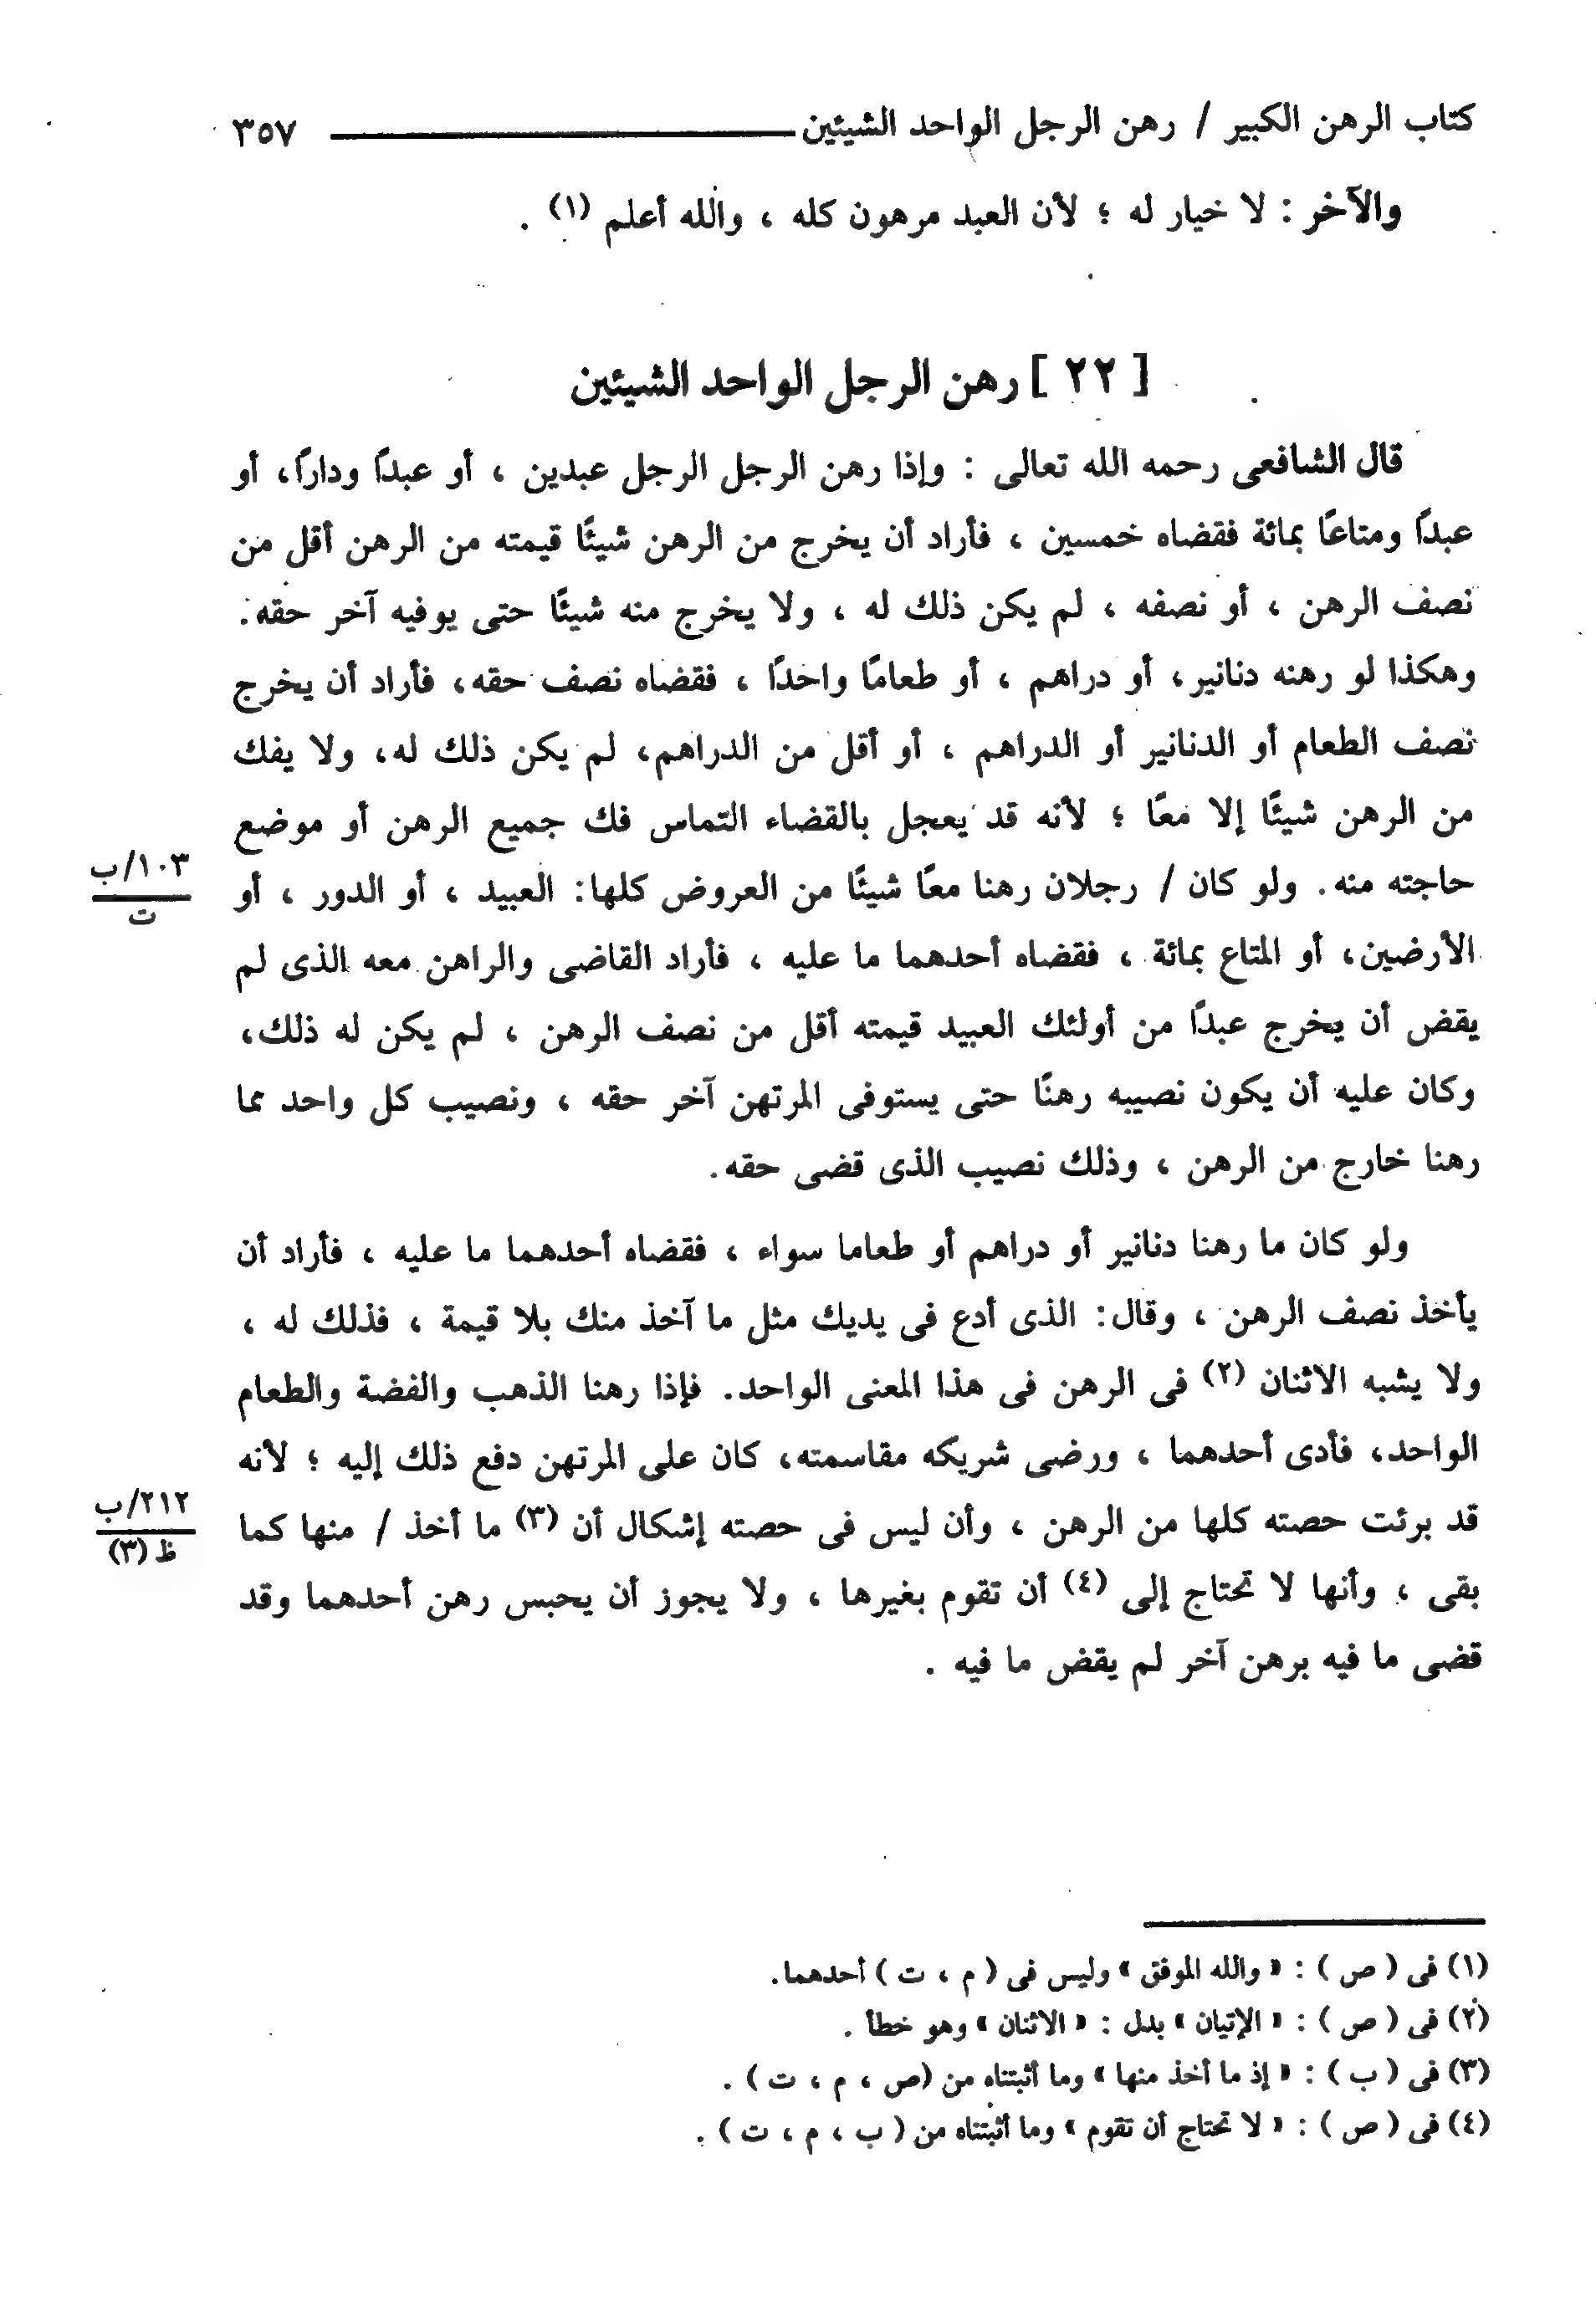 كتاب الرهن الكبير / رهن الرجل الواحد الشيئين ٣٥٧
والآخر : لا خيار له ؛ لأن العبد مرهون كله ، والله أعلم (١) .
[ ٢٢ ] رهن الرجل الواحد الشيئين
قال الشافعى رحمه الله تعالى : وإذا رهن الرجل الرجل عبدين ، أو عبدًا ودارًا، أو
عبدًا ومتاعًا بمائة فقضاه خمسين ، فأراد أن يخرج من الرهن شيئًا قيمته من الرهن أقل من
نصف الرهن ، أو نصفه ، لم يكن ذلك له ، ولا يخرج منه شيئًا حتى يوفيه آخر حقه.
وهكذا لو رهنه دنانير، أو دراهم ، أو طعامًا واحدًا ، فقضاه نصف حقه، فأراد أن يخرج
نصف الطعام أو الدنانير أو الدراهم ، أو أقل من الدراهم، لم يكن ذلك له، ولا يفك
من الرهن شيئًا إلا معًا ؛ لأنه قد يعجل بالقضاء التماس فك جميع الرهن أو موضع
حاجته منه. ولو كان / رجلان رهنا معًا شيئًا من العروض كلها: العبيد ، أو الدور ، أو
١٠٣/ب
ت
الأرضين، أو المتاع بمائة ، فقضاه أحدهما ما عليه ، فأراد القاضى والراهن معه الذى لم
يقض أن يخرج عبدًا من أولئك العبيد قيمته أقل من نصف الرهن ، لم يكن له ذلك،
وكان عليه أن يكون نصيبه رهنًا حتى يستوفى المرتهن آخر حقه ، ونصيب كل واحد مما
رهنا خارج من الرهن ، وذلك نصيب الذى قضى حقه.
ولو كان ما رهنا دنانير أو دراهم أو طعاما سواء ، فقضاه أحدهما ما عليه ، فأراد أن
يأخذ نصف الرهن ، وقال: الذى أدع فى يديك مثل ما آخذ منك بلا قيمة ، فذلك له ،
ولا يشبه الاثنان (٢) فى الرهن فى هذا المعنى الواحد. فإذا رهنا الذهب والفضة والطعام
الواحد، فأدى أحدهما ، ورضى شريكه مقاسمته، كان على المرتهن دفع ذلك إليه ؛ لأنه
قد برئت حصته كلها من الرهن ، وأن ليس فى حصته إشكال أن (٣) ما أخذ / منها كما
٢١٢/ب
ظ (٣)
بقى ، وأنها لا تحتاج إلى (٤) أن تقوم بغيرها ، ولا يجوز أن يحبس رهن أحدهما وقد
قضى ما فيه برهن آخر لم يقض ما فيه .
(١) فى ( ص ) : « والله الموفق » وليس فى ( م ، ت ) أحدهما.
(٢) فى ( ص ) : « الإتيان » بدل : « الاثنان » وهو خطأ .
(٣) فى ( ب ) : « إذ ما أخذ منها » وما أثبتناه من (ص ، م ، ت ) .
(٤) فى ( ص ) : « لا تحتاج أن تقوم » وما أثبتناه من ( ب ، م ، ت ) .